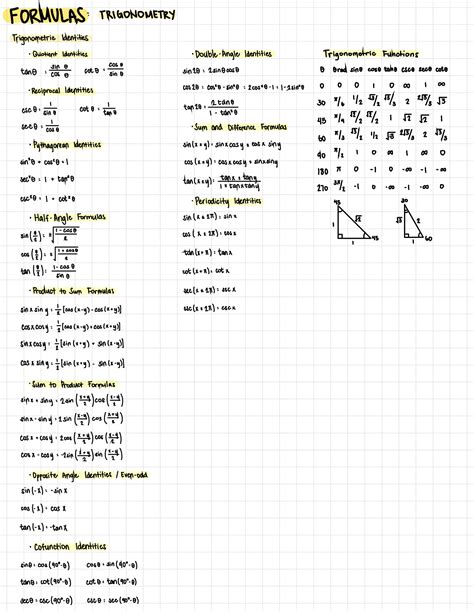 FORMULAS: TRIGONOMETRY
Trigonometric Identities
· Quotient Identities
tanθ = sin θ / cos θ   cot θ = cos θ / sin θ
· Reciprocal Identities
csc θ = 1 / sin θ   cot θ = 1 / tan θ
sec θ = 1 / cos θ
· Pythagorean Identities
sin²θ + cos²θ = 1
sec²θ = 1 + tan²θ
csc²θ = 1 + cot²θ
· Half-Angle Formulas
sin(θ/2) = ±√(1 - cos θ / 2)
cos(θ/2) = ±√(1 + cos θ / 2)
tan(θ/2) = 1 - cos θ / sin θ
· Product to Sum Formulas
sin x sin y = 1/2 [cos(x-y) - cos(x+y)]
cos x cos y = 1/2 [cos(x-y) + cos(x+y)]
sin x cos y = 1/2 [sin(x+y) + sin(x-y)]
cos x sin y = 1/2 [sin(x+y) - sin(x-y)]
· Sum to Product Formulas
sin x + sin y = 2 sin(x+y/2) cos(x-y/2)
sin x - sin y = 2 sin(x-y/2) cos(x+y/2)
cos x + cos y = 2 cos(x+y/2) cos(x-y/2)
cos x - cos y = -2 sin(x+y/2) sin(x-y/2)
· Opposite Angle Identities / Even-odd
sin(-x) = -sin x
cos(-x) = cos x
tan(-x) = -tan x
· Cofunction Identities
sin θ = cos(90°-θ)   cos θ = sin(90°-θ)
tan θ = cot(90°-θ)   cot θ = tan(90°-θ)
sec θ = csc(90°-θ)   csc θ = sec(90°-θ)
· Double-Angle Identities
sin 2θ = 2 sin θ cos θ
cos 2θ = cos²θ - sin²θ = 2cos²θ - 1 = 1 - 2sin²θ
tan 2θ = 2 tan θ / 1 - tan²θ
· Sum and Difference Formulas
sin(x ± y) = sin x cos y ± cos x sin y
cos(x ± y) = cos x cos y ∓ sin x sin y
tan(x ± y) = tan x ± tan y / 1 ∓ tan x tan y
· Periodicity Identities
sin(x ± 2π) = sin x
cos(x ± 2π) = cos x
tan(x ± π) = tan x
cot(x ± π) = cot x
sec(x ± 2π) = sec x
csc(x ± 2π) = csc x
Trigonometric Functions
θ θrad sin θ cos θ tan θ csc θ sec θ cot θ
0 0 0 1 0 ∞ 1 ∞
30 π/6 1/2 √3/2 √3/3 2 2√3/3 √3
45 π/4 √2/2 √2/2 1 √2 √2 1
60 π/3 √3/2 1/2 √3 2√3/3 2 √3/3
90 π/2 1 0 ∞ 1 ∞ 0
180 π 0 -1 0 -∞ -1 -∞
270 3π/2 -1 0 -∞ -1 -∞ 0
45
1
√2
1
45
30
√3
2
1
60